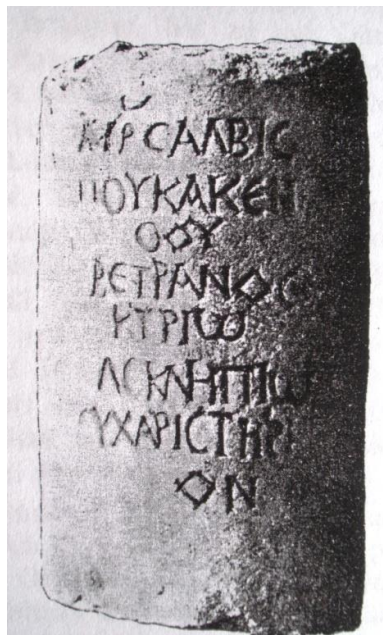 ΑΥΡ ϹΑΛΒΙϹ
ΠΟΥΚΑΚΕΝ
ΘΟΥ
ΒΕΤΡΑΝΟϹ
ΚΥΡΙω
ΑϹΚΛΗΠΙω
ΕΥΧΑΡΙϹΤΗΡΙ
ΟΝ